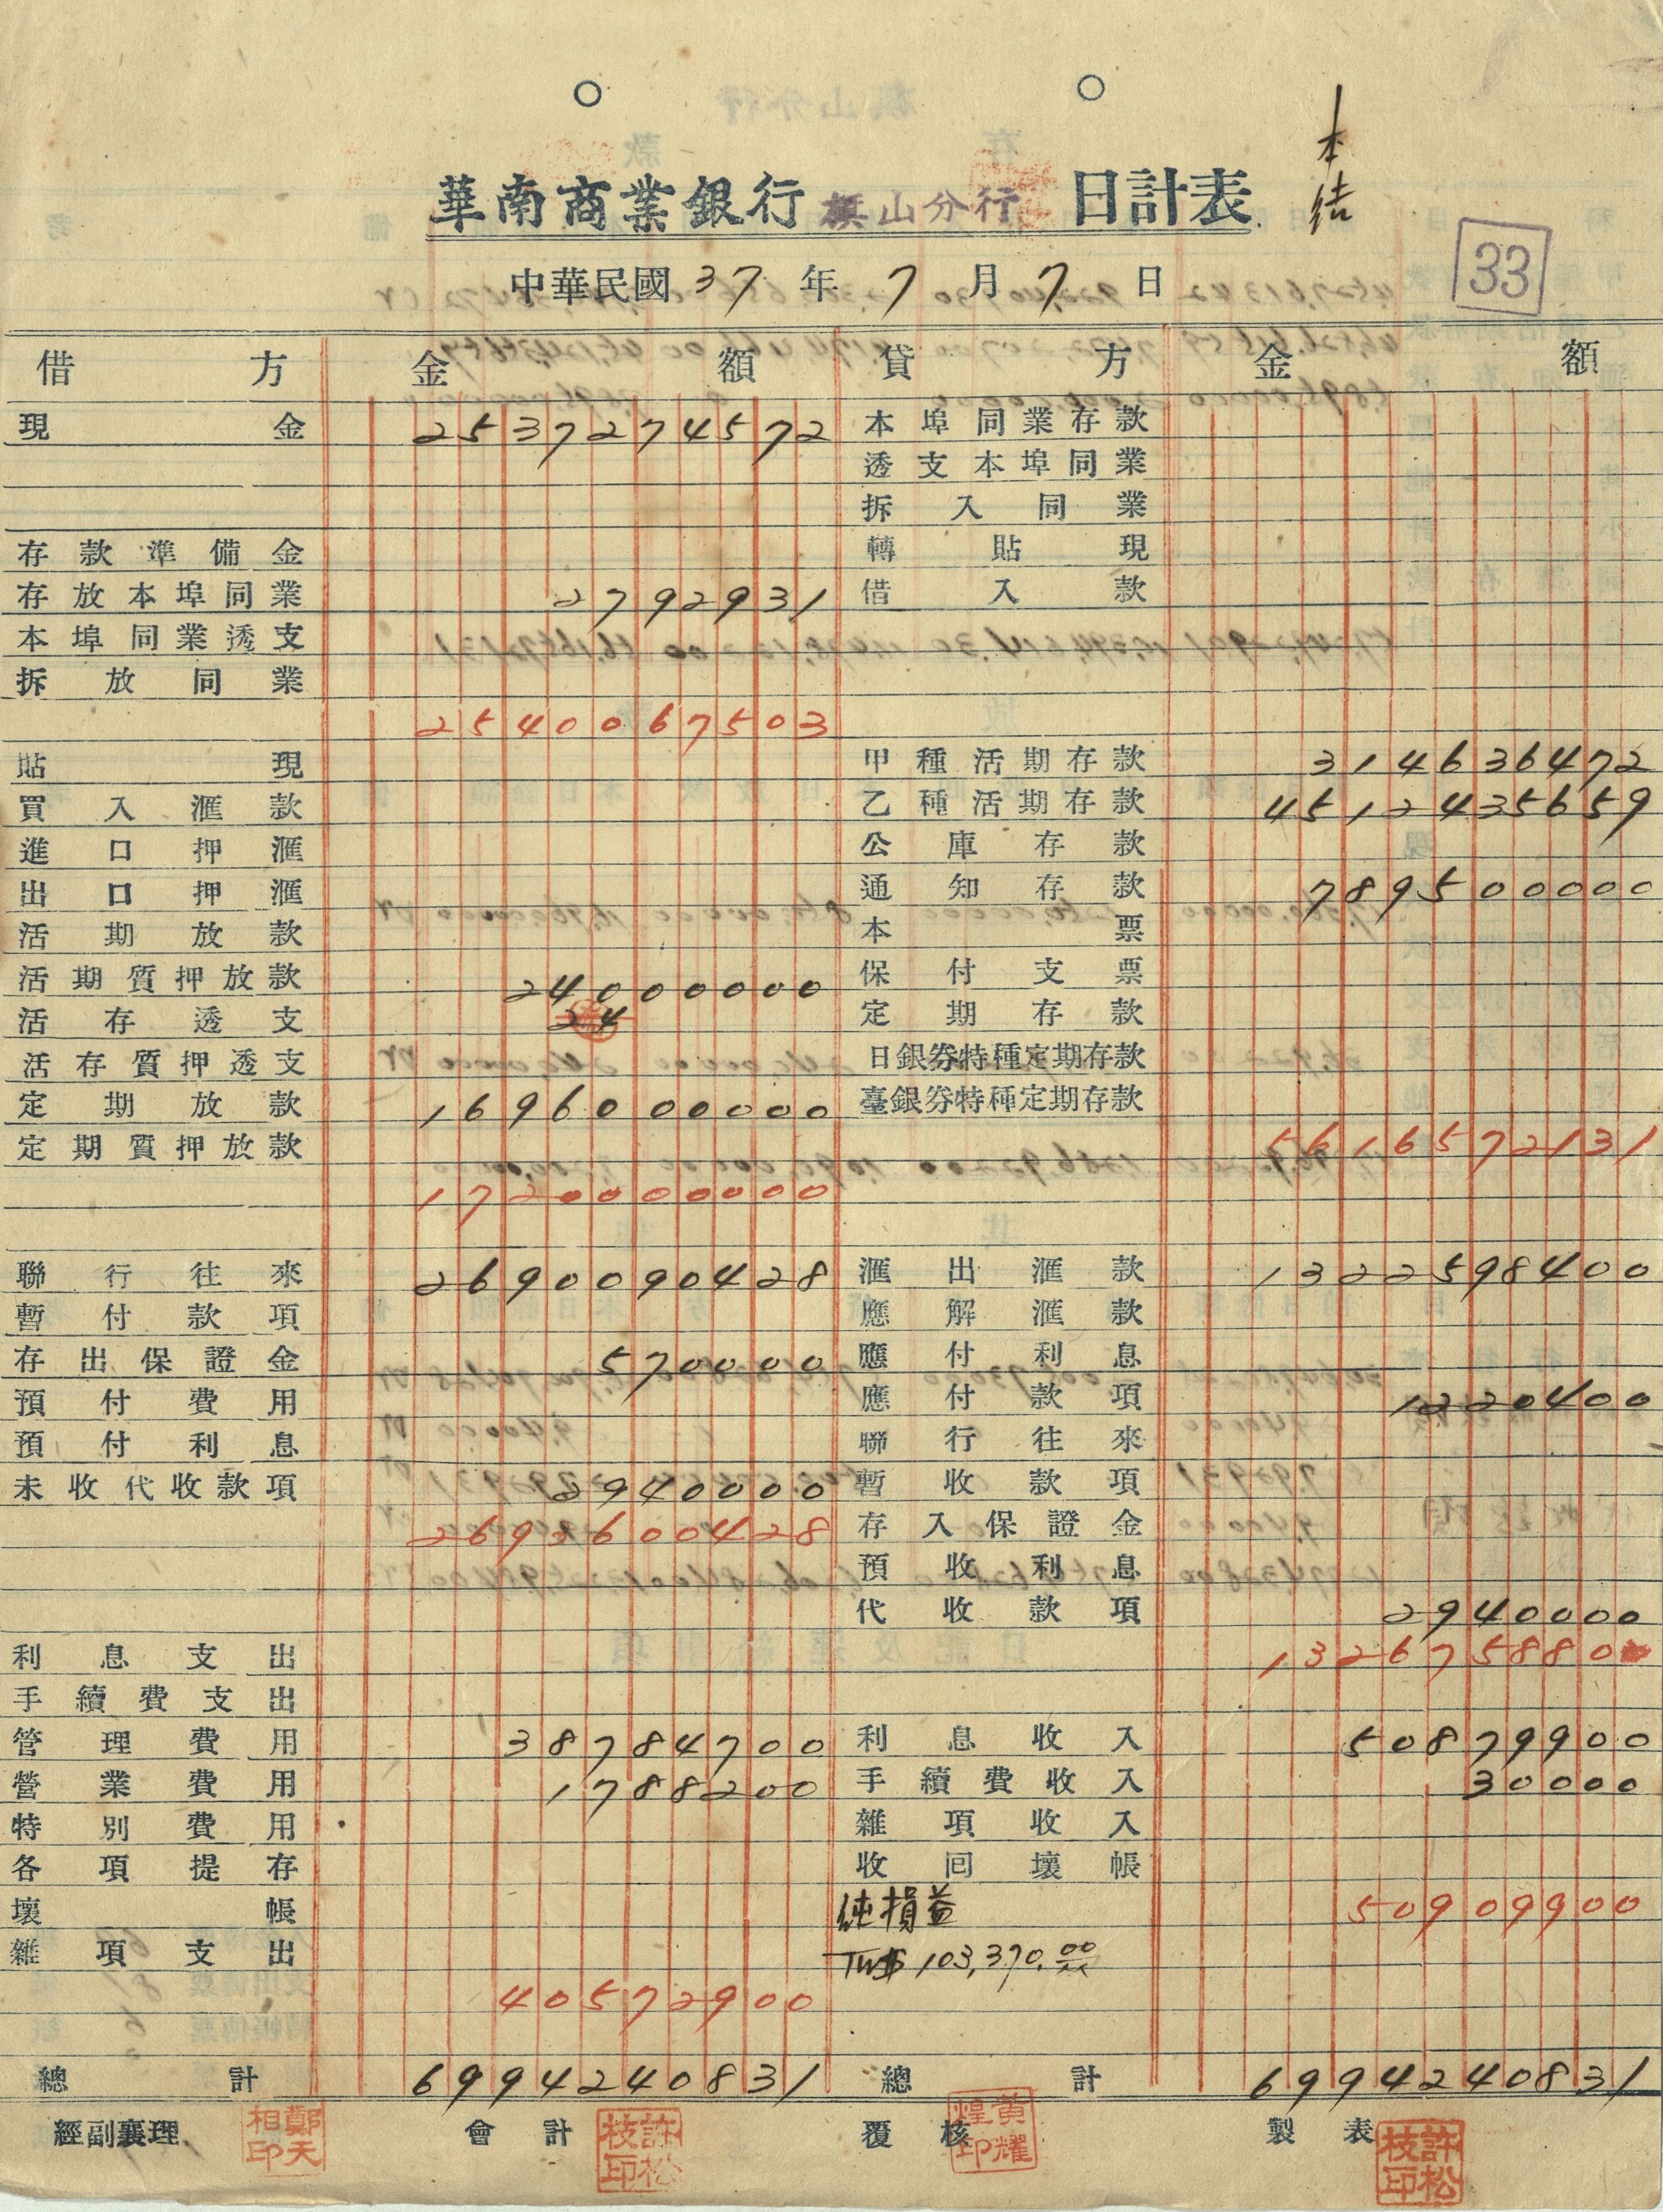 本結
華南商業銀行 旗山分行 日計表
33
中華民國 37 年 7 月 7 日
借方 金額 貸方 金額
現金 2537274572 本埠同業存款
透支本埠同業
拆入同業
存款準備金 轉貼現
存放本埠同業 2792931 借入款
本埠同業透支
拆放同業
2540067503
貼現 甲種活期存款 314636472
買入滙款 乙種活期存款 4512435659
進口押滙 公庫存款
出口押滙 通知存款 789500000
活期放款 本票
活期質押放款 24000000 保付支票
活存透支 24 定期存款
活存質押透支 日銀券特種定期存款
定期放款 1696000000 臺銀券特種定期存款
定期質押放款 5616572131
1720000000
聯行往來 2690090428 滙出滙款 1322598400
暫付款項 應解滙款
存出保證金 570000 應付利息
預付費用 應付款項 1220400
預付利息 聯行往來
未收代收款項 2940000 暫收款項
2693600428 存入保證金
預收利息
代收款項 2940000
利息支出 1326758800
手續費支出
管理費用 38784700 利息收入 50879900
營業費用 1788200 手續費收入 30000
特別費用 雜項收入
各項提存 收回壞帳
壞帳 純損益 50909900
雜項支出 TW$ 103,370.00
40572900
總計 6994240831 總計 6994240831
經副襄理 鄭天相印 會計 許松枝印 覆核 黃耀煌印 製表 許松枝印